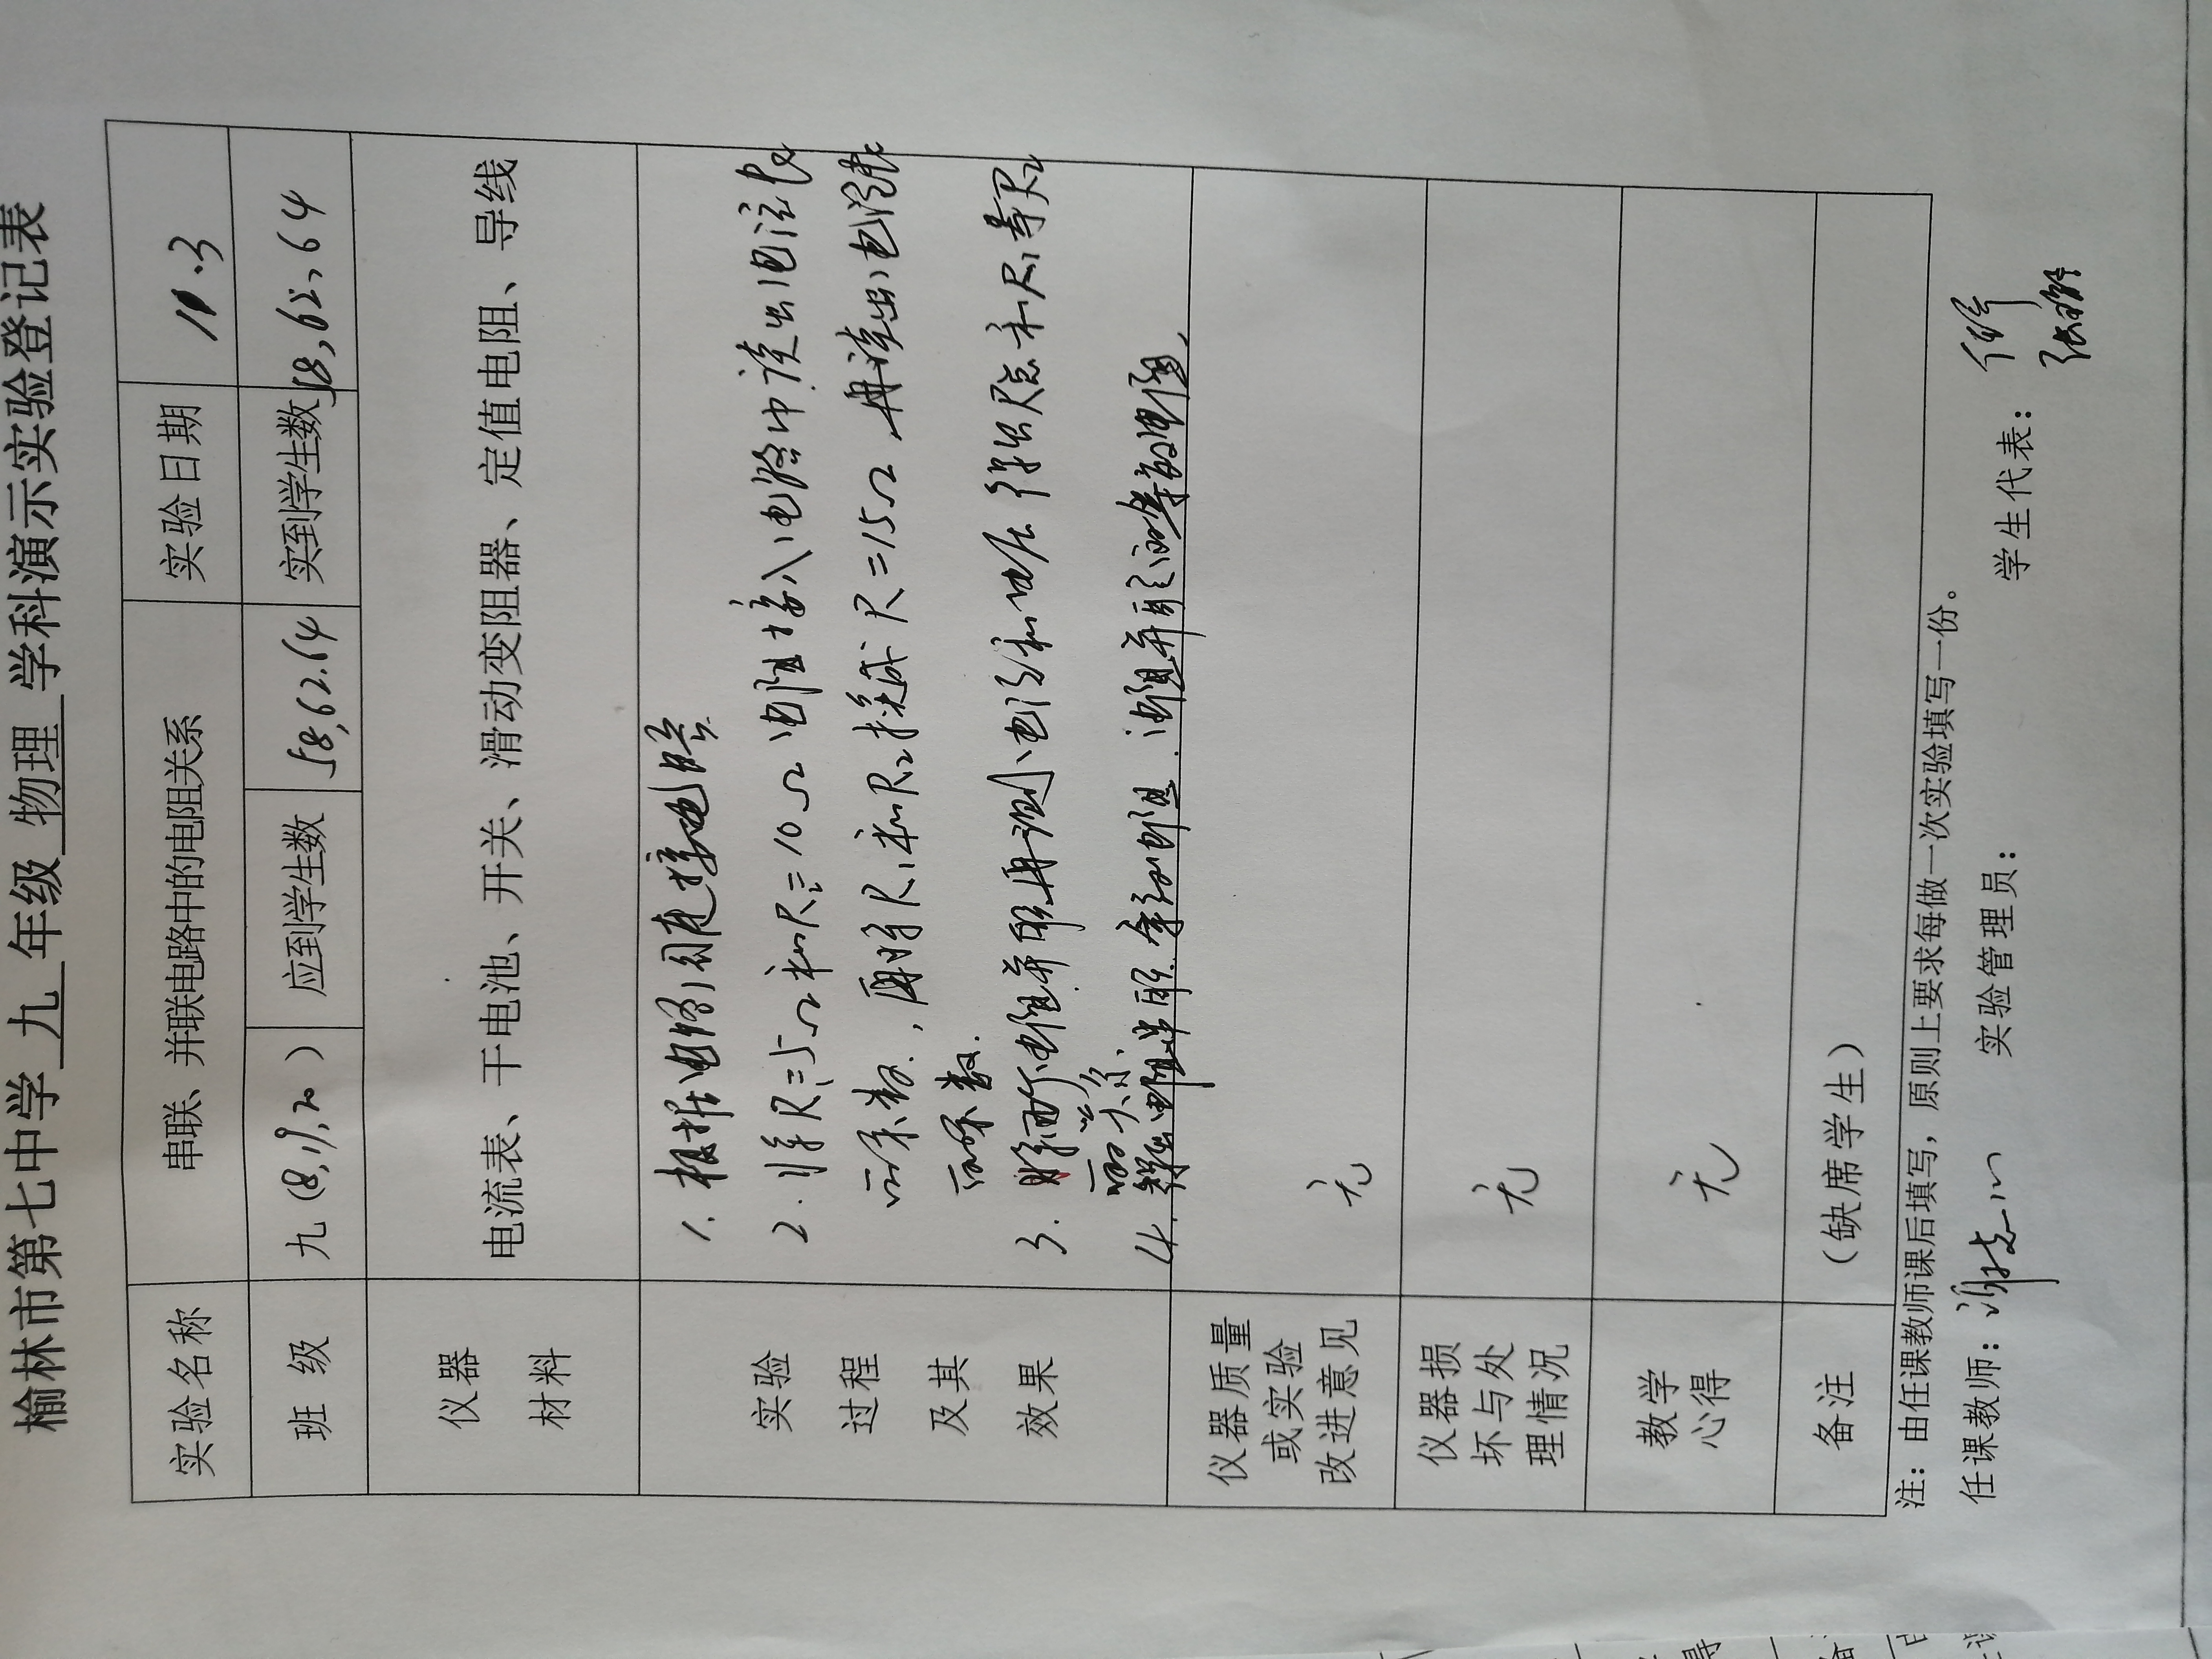 榆林市第七中学 九 年级 物理 学科演示实验登记表
实验名称 串联、并联电路中的电阻关系 实验日期 11.3
班 级 九(8,19,20) 应到学生数 58,62.64 实到学生数 58,62,64
仪器
材料
电流表、干电池、开关、滑动变阻器、定值电阻、导线
实验
过程
及其
效果
1. 根据电路图连接电路
2. 将R₁=5Ω和R₂=10Ω电阻接入电路中读出电流表
示数,再将R₁和R₂换成R=15Ω再读出电流表
示数.
3. 将两个电阻并联再测电流和电压得出R总和R₁与R₂
的关系.
4. 电阻串联 电阻.电阻并联 等效电阻.
仪器质量
或实验
改进意见
无
仪器损
坏与处
理情况
无
教学
心得
无
备注 (缺席学生)
注:由任课教师课后填写,原则上要求每做一次实验填写一份。
任课教师: 实验管理员: 学生代表: